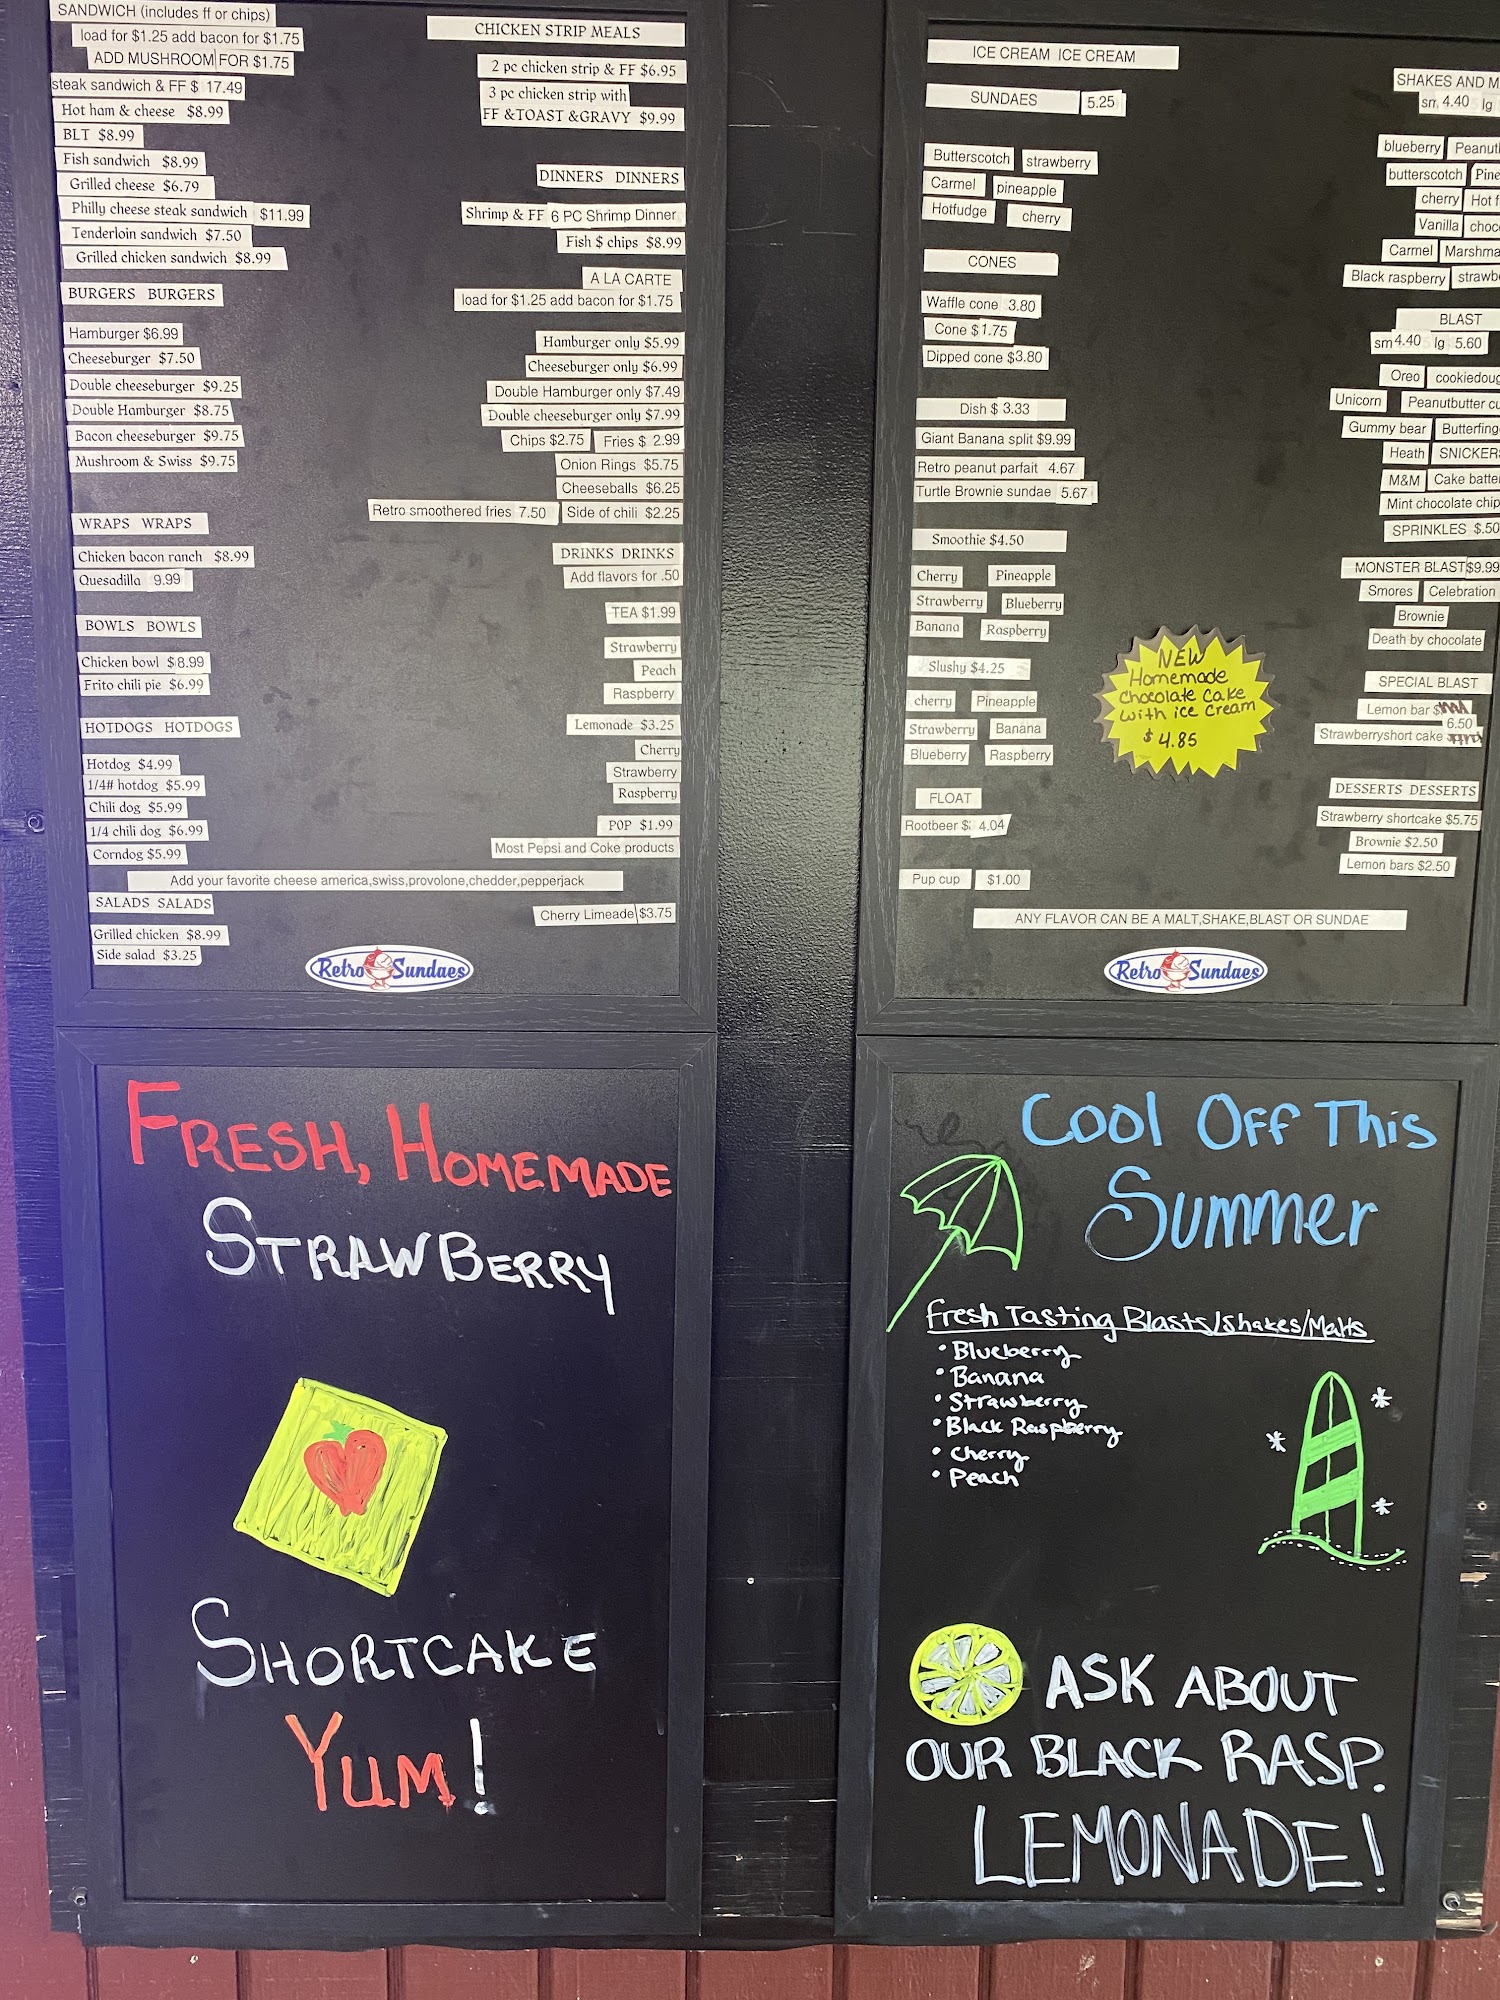 SANDWICH (includes ff or chips)
load for $1.25 add bacon for $1.75
ADD MUSHROOM FOR $1.75
steak sandwich & FF $ 17.49
Hot ham & cheese $8.99
BLT $8.99
Fish sandwich $8.99
Grilled cheese $6.79
Philly cheese steak sandwich $11.99
Tenderloin sandwich $7.50
Grilled chicken sandwich $8.99
BURGERS BURGERS
Hamburger $6.99
Cheeseburger $7.50
Double cheeseburger $9.25
Double Hamburger $8.75
Bacon cheeseburger $9.75
Mushroom & Swiss $9.75
WRAPS WRAPS
Chicken bacon ranch $8.99
Quesadilla 9.99
BOWLS BOWLS
Chicken bowl $8.99
Frito chili pie $6.99
HOTDOGS HOTDOGS
Hotdog $4.99
1/4# hotdog $5.99
Chili dog $5.99
1/4 chili dog $6.99
Corndog $5.99
Add your favorite cheese america,swiss,provolone,chedder,pepperjack
SALADS SALADS
Grilled chicken $8.99
Side salad $3.25
CHICKEN STRIP MEALS
2 pc chicken strip & FF $6.95
3 pc chicken strip with
FF &TOAST &GRAVY $9.99
DINNERS DINNERS
Shrimp & FF 6 PC Shrimp Dinner
Fish $ chips $8.99
A LA CARTE
load for $1.25 add bacon for $1.75
Hamburger only $5.99
Cheeseburger only $6.99
Double Hamburger only $7.49
Double cheeseburger only $7.99
Chips $2.75 Fries $ 2.99
Onion Rings $5.75
Cheeseballs $6.25
Retro smoothered fries 7.50 Side of chili $2.25
DRINKS DRINKS
Add flavors for .50
TEA $1.99
Strawberry
Peach
Raspberry
Lemonade $3.25
Cherry
Strawberry
Raspberry
POP $1.99
Most Pepsi and Coke products
Cherry Limeade $3.75
Retro Sundaes
ICE CREAM ICE CREAM
SUNDAES 5.25
Butterscotch strawberry
Carmel pineapple
Hotfudge cherry
CONES
Waffle cone 3.80
Cone $1.75
Dipped cone $3.80
Dish $ 3.33
Giant Banana split $9.99
Retro peanut parfait 4.67
Turtle Brownie sundae 5.67
Smoothie $4.50
Cherry Pineapple
Strawberry Blueberry
Banana Raspberry
Slushy $4.25
cherry Pineapple
Strawberry Banana
Blueberry Raspberry
FLOAT
Rootbeer $ 4.04
Pup cup $1.00
NEW
Homemade
Chocolate Cake
with ice cream
$ 4.85
SHAKES AND M
sm 4.40 lg
blueberry Peanut
butterscotch Pine
cherry Hot f
Vanilla choc
Carmel Marshma
Black raspberry strawb
BLAST
sm 4.40 lg 5.60
Oreo cookiedoug
Unicorn Peanutbutter cu
Gummy bear Butterfing
Heath SNICKERS
M&M Cake batte
Mint chocolate chip
SPRINKLES $.50
MONSTER BLAST $9.99
Smores Celebration
Brownie
Death by chocolate
SPECIAL BLAST
Lemon bar $
6.50
Strawberryshort cake
DESSERTS DESSERTS
Strawberry shortcake $5.75
Brownie $2.50
Lemon bars $2.50
ANY FLAVOR CAN BE A MALT,SHAKE,BLAST OR SUNDAE
Retro Sundaes
FRESH, HOMEMADE
STRAWBERRY
SHORTCAKE
YUM!
Cool Off This
Summer
Fresh Tasting Blasts/Shakes/Malts
• Blueberry
• Banana
• Strawberry
• Black Raspberry
• Cherry
• Peach
ASK ABOUT
OUR BLACK RASP.
LEMONADE!